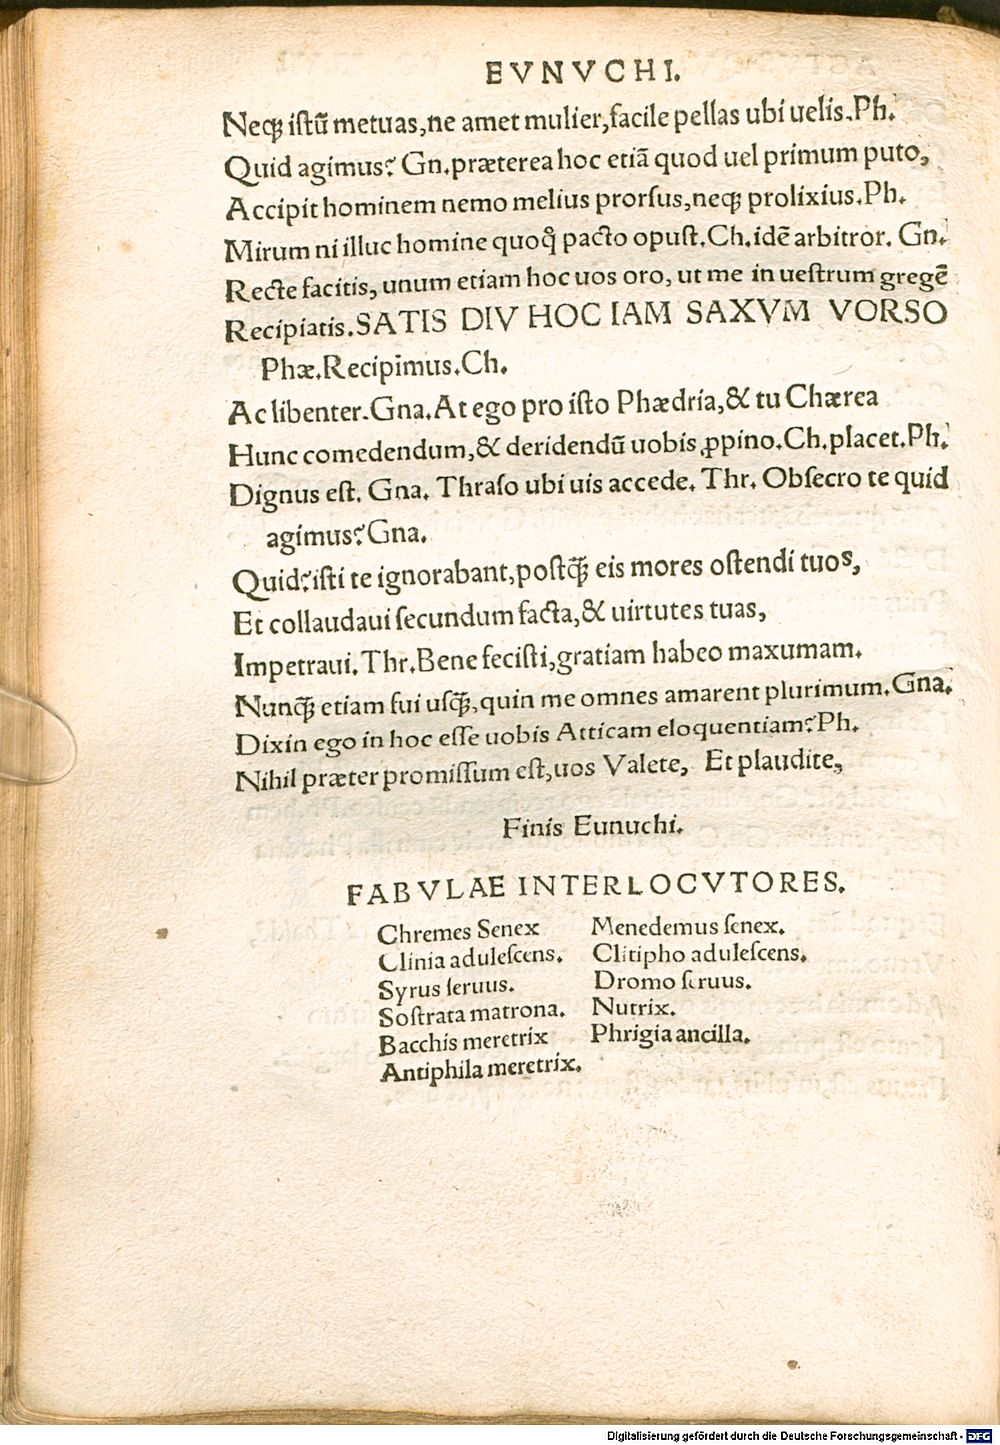 EVNVCHI.
Neqꝫ iſtũ metuas,ne amet mulier,facile pellas ubi uelis.Ph.
Quid agimus? Gn.præterea hoc etiã quod uel primum puto,
Accipit hominem nemo melius prorſus,neqꝫ prolixius.Ph.
Mirum ni illuc homine quoq̊ pacto opuſt.Ch.idẽ arbitror. Gn.
Recte facitis, unum etiam hoc uos oro, ut me in ueſtrum gregẽ
Recipiatis.SATIS DIV HOC IAM SAXVM VORSO
Phæ.Recipimus.Ch.
Ac libenter.Gna.At ego pro iſto Phædria,& tu Chærea
Hunc comedendum,& deridendũ uobis ꝓpino.Ch.placet.Ph.
Dignus eſt. Gna. Thraſo ubi uis accede. Thr. Obſecro te quid
agimus? Gna.
Quid? iſti te ignorabant,poſtq̃ꝫ eis mores oſtendi tuos,
Et collaudaui ſecundum facta,& uirtutes tuas,
Impetraui. Thr.Bene feciſti,gratiam habeo maxumam.
Nunq̃ꝫ etiam fui uſq̃ꝫ,quin me omnes amarent plurimum.Gna.
Dixin ego in hoc eſſe uobis Atticam eloquentiam? Ph.
Nihil præter promiſſum eſt,uos Valete, Et plaudite,
Finis Eunuchi.
FABVLAE INTERLOCVTORES.
Chremes Senex Menedemus ſenex.
Clinia aduleſcens. Clitipho aduleſcens.
Syrus ſeruus. Dromo ſeruus.
Soſtrata matrona. Nutrix.
Bacchis meretrix Phrigia ancilla.
Antiphila meretrix.
Digitalisierung gefördert durch die Deutsche Forschungsgemeinschaft - DFG